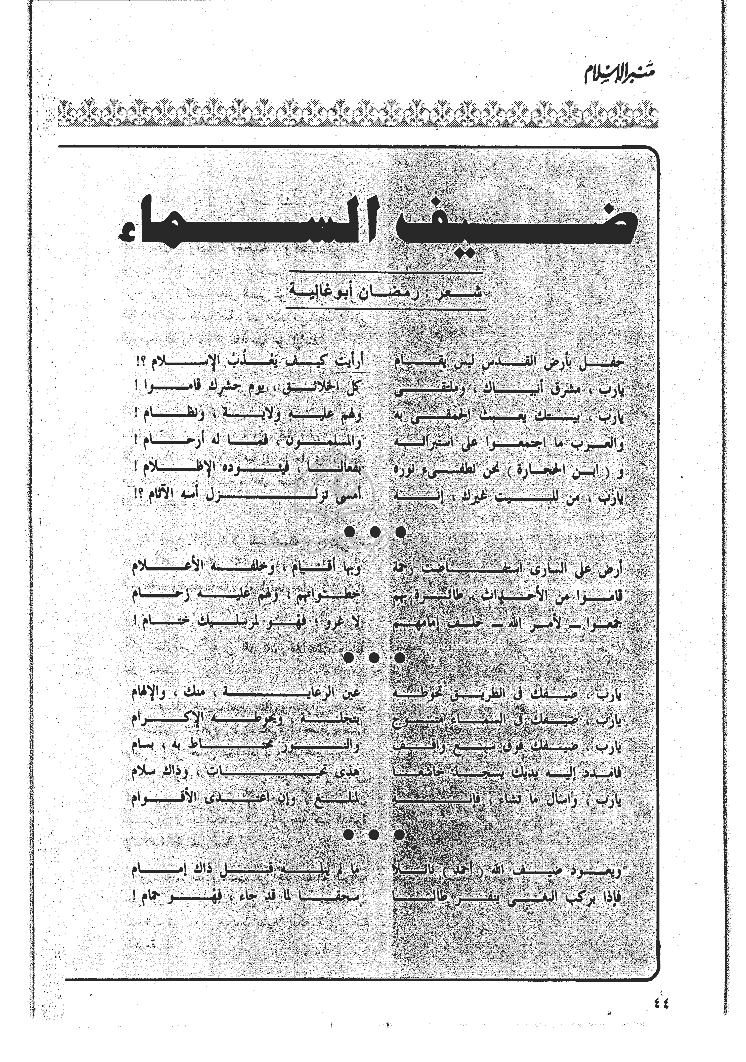 منبر الإسلام
ضيف السماء
شعر : رمضان أبو غالية
حفل بأرض القدس ليس يقام أرأيت كيف يعذب الإسلام ؟!
يارب ، مشرق أنبياك ، وملتقى كل الخلائق ، يوم حشرك قاموا !
يارب ، بيتك يعبث الحمقى به ولهم عليه ولاية ، ونظام !
والعرب ما اجتمعوا على استبرائه والمسلمون ، فما له أرحام !
و ( ابن الحجارة ) نحن نطفىء نوره بفعالنا ، فيقوده الإظلام !
يارب ، من للبيت غيرك ، إنه أمسى تزلزل أسه الآثام ؟!
أرض على السارى استفاضت رحمة وبها أقيام ، وخلفه الأعلام
قاموا من الأجداث ، طائرة بهم خطواتهم ، ولهم عليه زحام
جمعوا ــ لأمر الله ــ خلف إمامهم لا غرو ، فهو لمرسليك ختام !
يارب ، ضيفك فى الطريق تحوطه عين الرعاية ، منك ، والإلهام
يارب ، ضيفك فى السماء متوج بتجلة ، ويحوطه الإكرام
يارب ، ضيفك فوق سبع واقف والنور محتاط به ، بسام
فامدد إليه يديك يسجد خاشعا هذى تحيات ، وذاك سلام
يارب ، واسأل ما تشاء ،
ويعود ضيف الله ( أحمد ) بالـ ما لم ينله قبل ذاك إمام
فإذا بركب البغى ينفر سحقا لما قد جاء ، فهو حمام !
٤٤